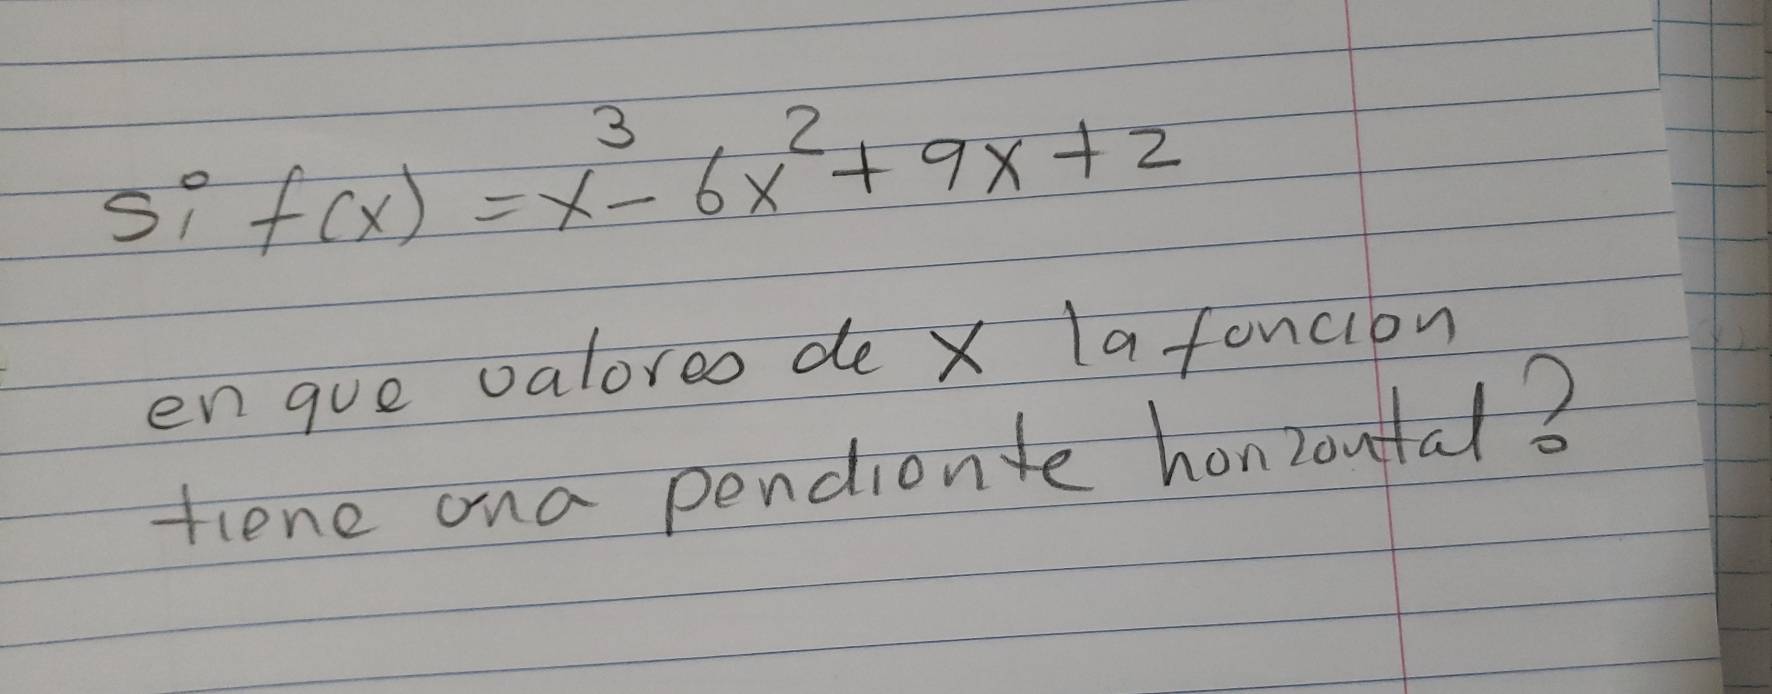 si f(x) = x³ - 6x² + 9x + 2
en que valores de x la funcion
tiene una pendiente horizontal?